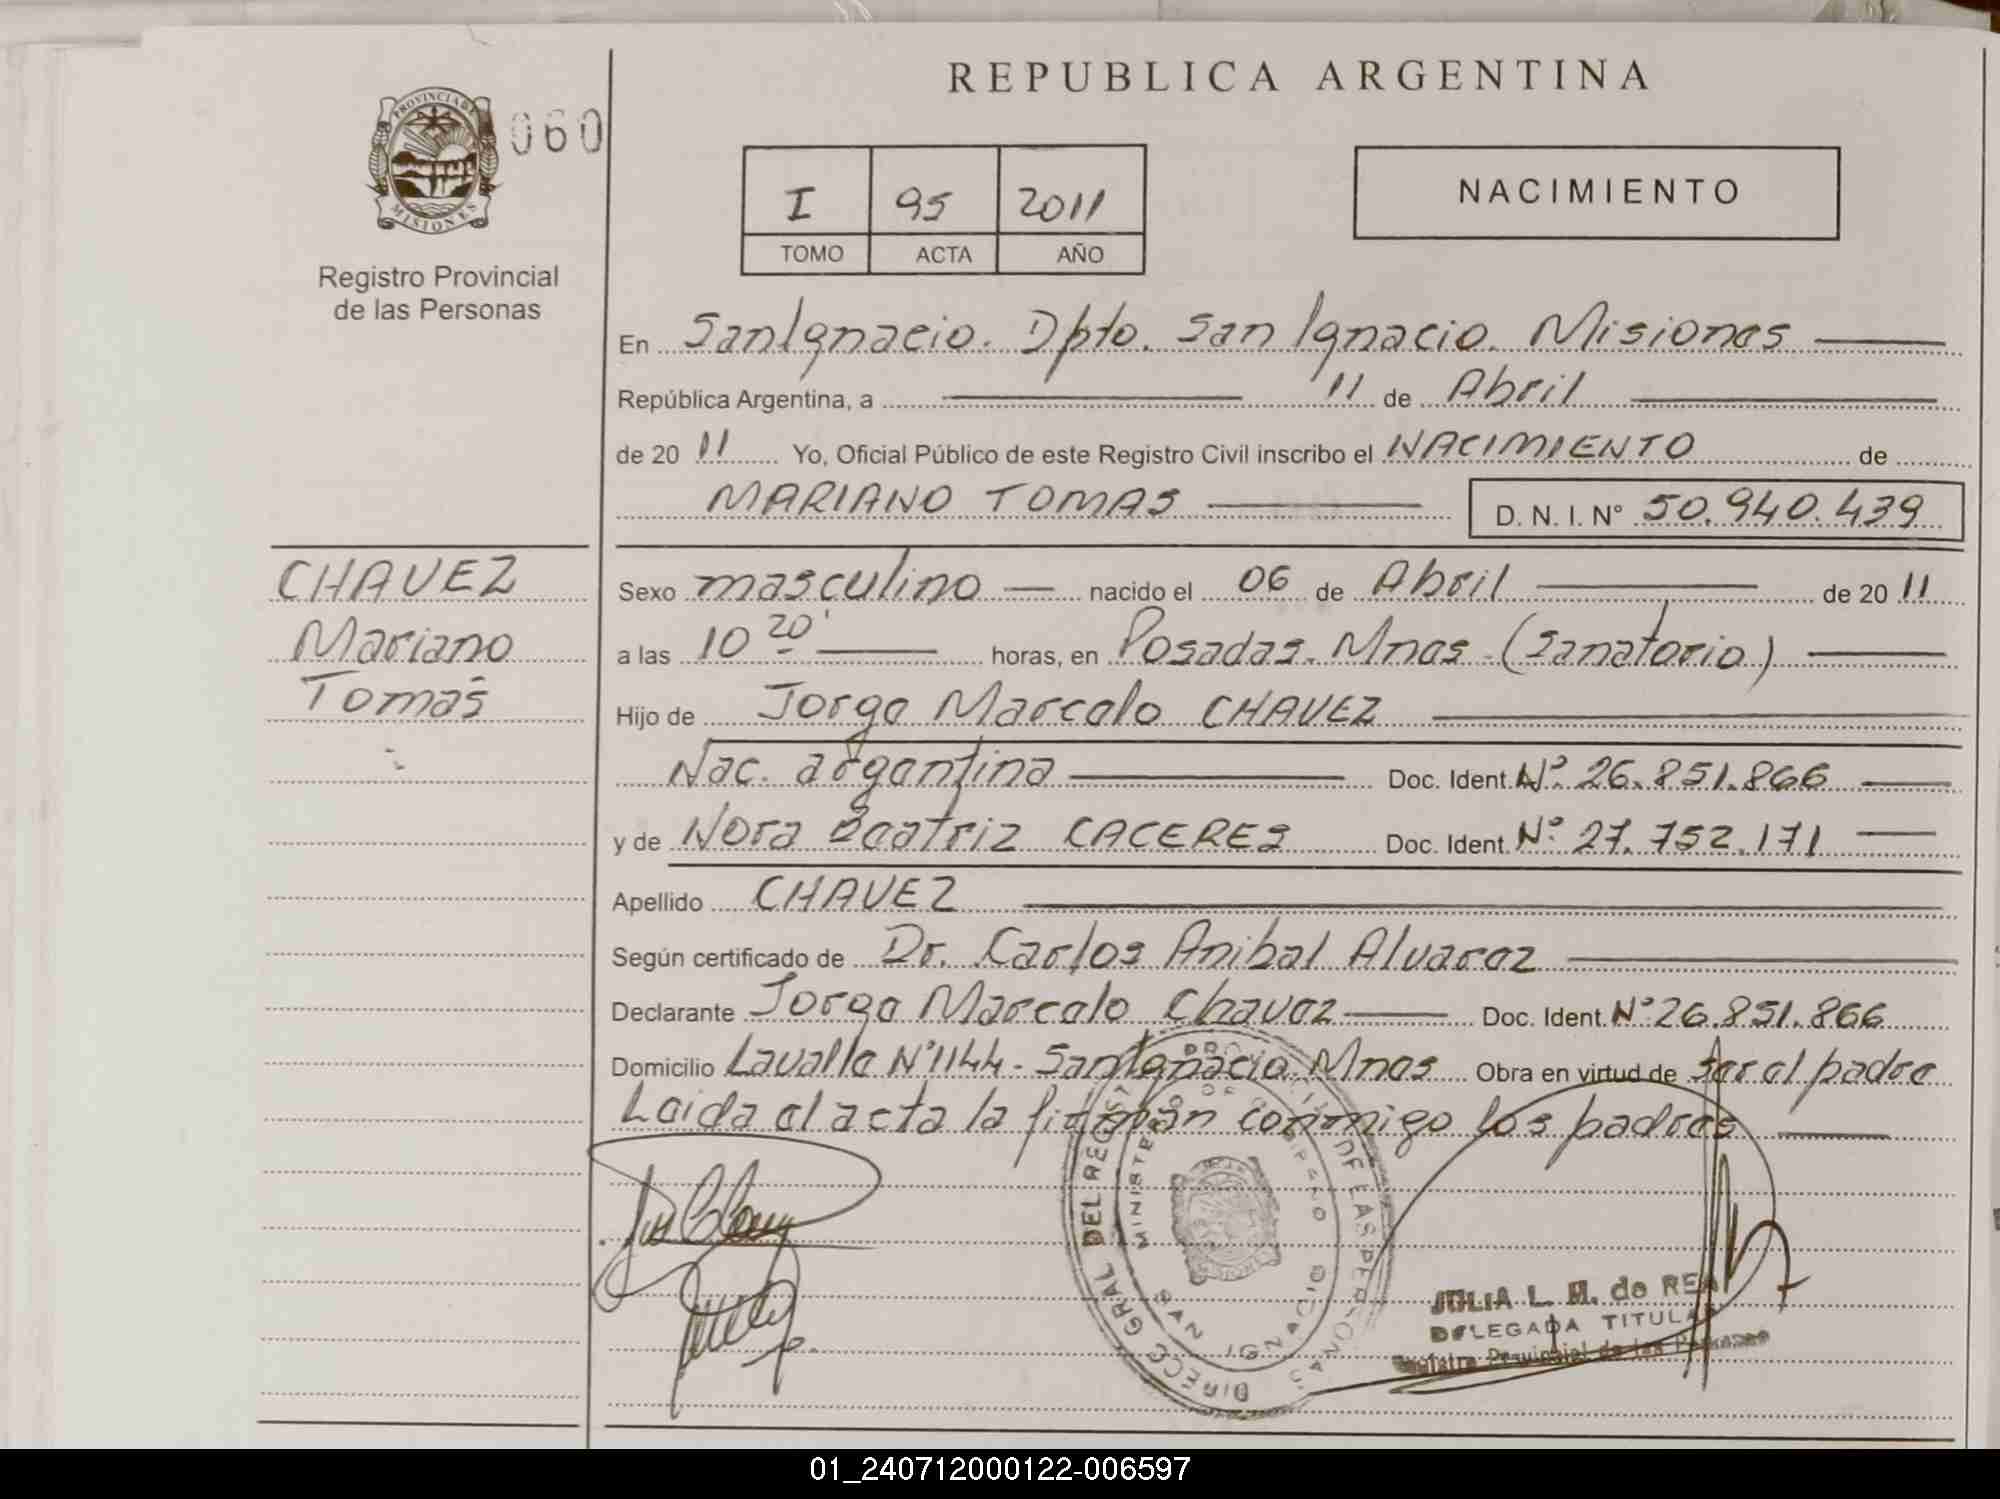 REPUBLICA ARGENTINA
PROVINCIA DE MISIONES
060
Registro Provincial
de las Personas
I 95 2011
TOMO ACTA AÑO
NACIMIENTO
En San Ignacio. Dpto. San Ignacio. Misiones
República Argentina, a 11 de Abril
de 20 11 Yo, Oficial Público de este Registro Civil inscribo el NACIMIENTO de
MARIANO TOMAS D. N. I. N° 50.940.439
CHAVEZ
Mariano
Tomás
Sexo masculino nacido el 06 de Abril de 20 11
a las 10 20' horas, en Posadas. Mnes. (Sanatorio)
Hijo de Jorge Marcelo CHAVEZ
Nac. argentina Doc. Ident. Nº 26.851.866
y de Nora Beatriz CACERES Doc. Ident. Nº 27.752.171
Apellido CHAVEZ
Según certificado de Dr. Carlos Anibal Alvarez
Declarante Jorge Marcelo Chavez Doc. Ident. Nº 26.851.866
Domicilio Lavalle Nº 1144 - San Ignacio. Mnes Obra en virtud de ser el padre
Leida el acta la firman conmigo los padres
DIRECC GRAL DEL REGIST PROVINCIAL DE LAS PERSONAS
MINISTERIO DE GOBIERNO
SAN IGNACIO
JULIA L. H. de REA
DELEGADA TITULAR
Registro Provincial de las Personas
01_240712000122-006597